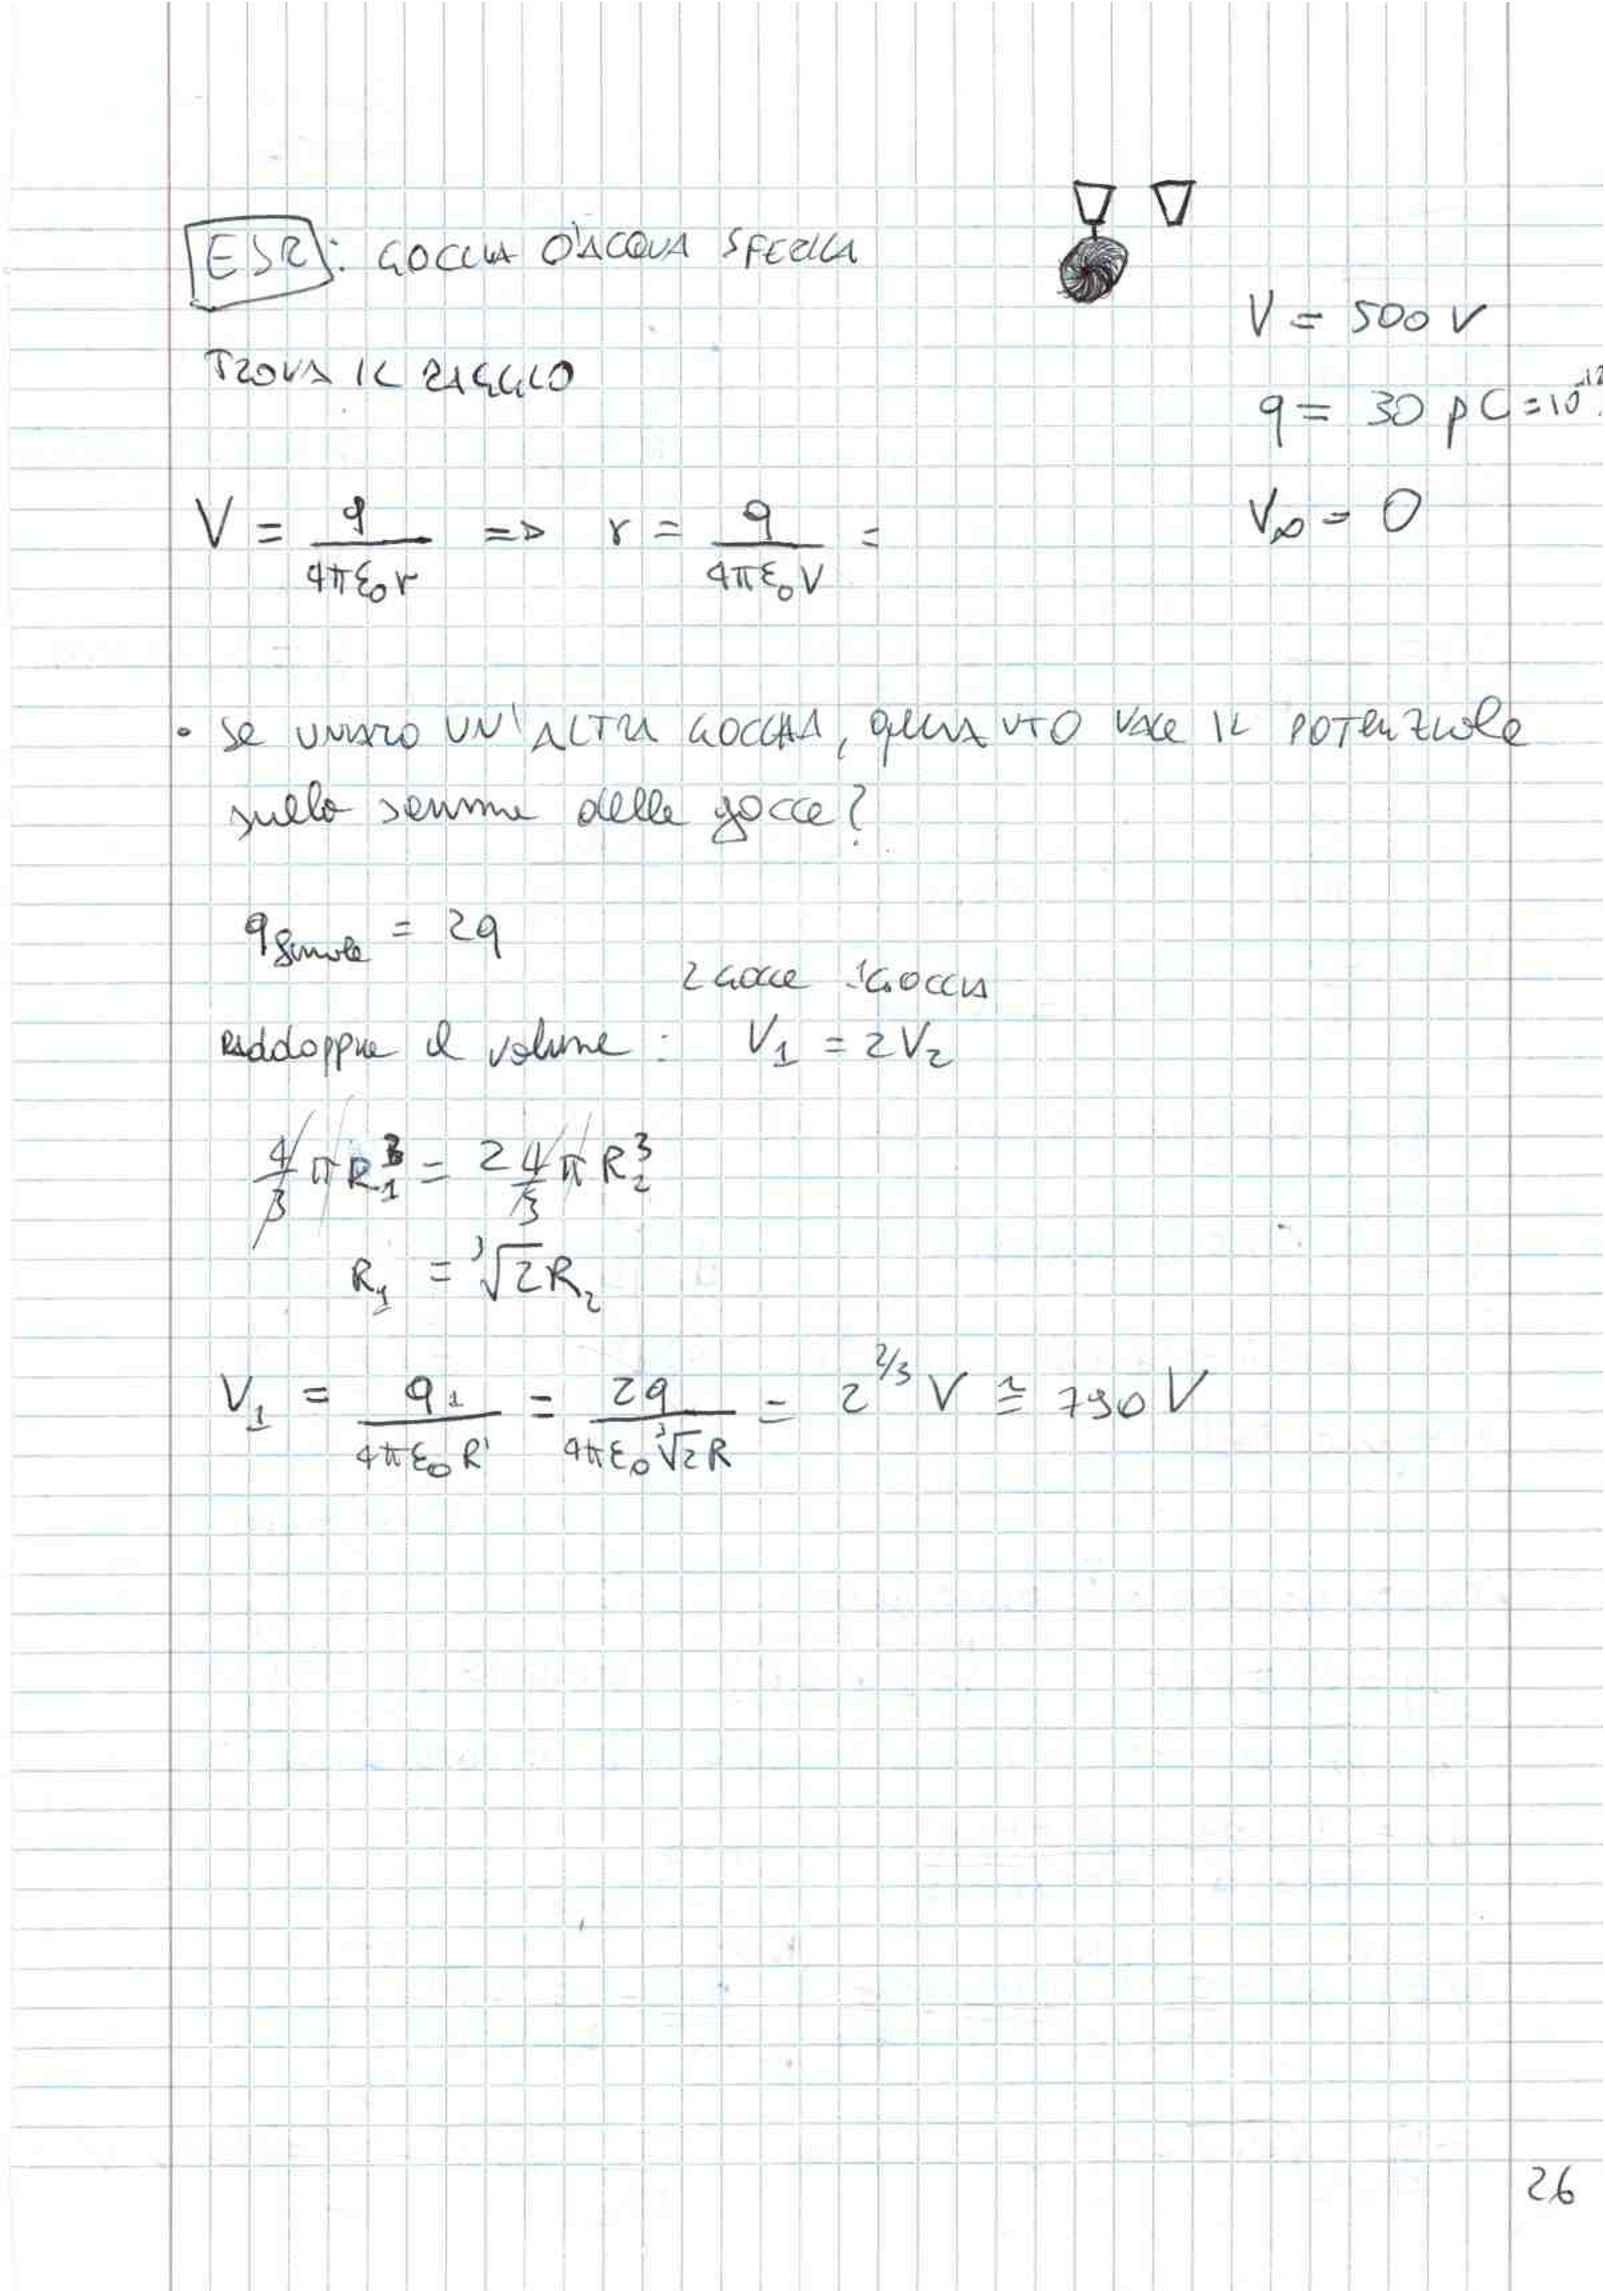 ESR: GOCCIA D'ACQUA SFERICA
V = 500 V
TROVA IL RAGGIO
q = 30 pC = 10^-12
V∞ = 0
V = q / 4πε₀r => r = q / 4πε₀V =
• Se UNIAMO UN'ALTRA GOCCIA, QUANTO VALE IL POTENZIALE
sulla somma delle gocce?
q finale = 2q
2 GOCCE 1 GOCCIA
RADDOPPIA il volume : V₁ = 2V₂
4/3 π R₁³ = 2 4/3 π R₂³
R₁ = ³√2 R₂
V₁ = q₁ / 4πε₀R' = 2q / 4πε₀ ³√2 R = 2^2/3 V ≅ 790 V
26